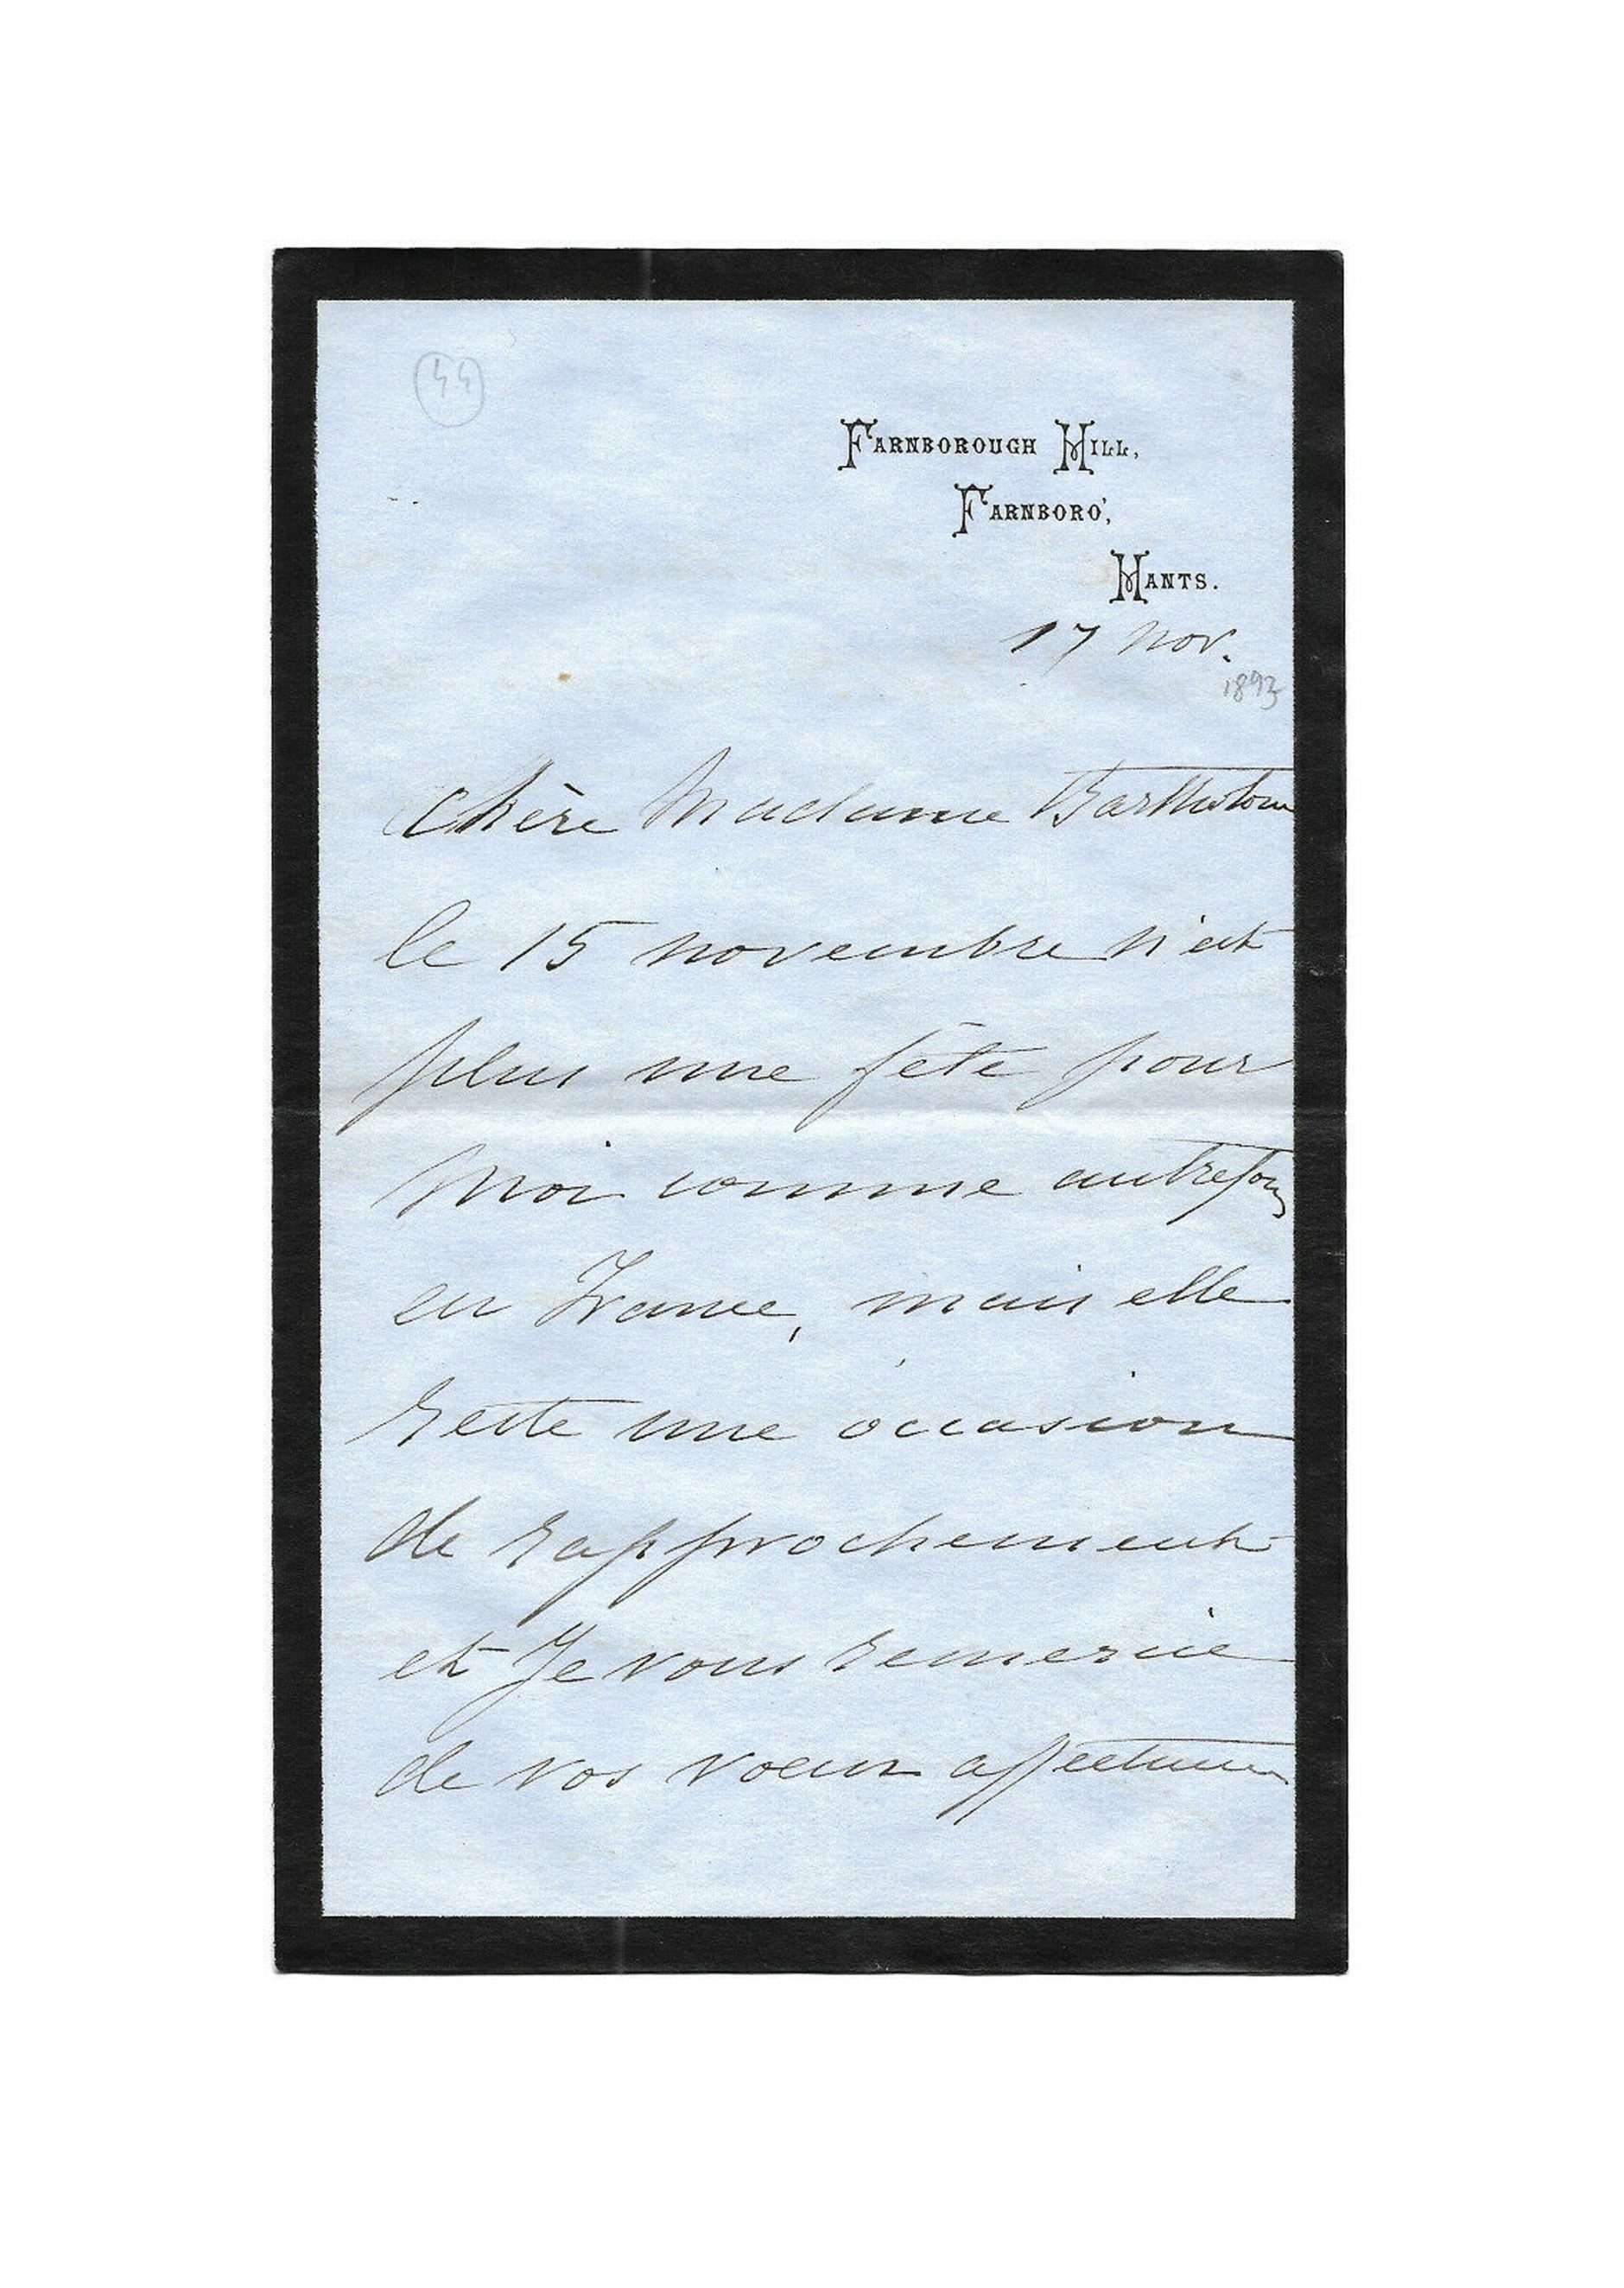 44
FARNBOROUGH HILL,
FARNBORO',
HANTS.
17 Nov.
1893
Chère Madame Bartholoni
le 15 novembre n'est
plus une fête pour
moi comme autrefois
en France, mais elle
reste une occasion
de rapprochement
et Je vous remercie
de vos voeux affectueux